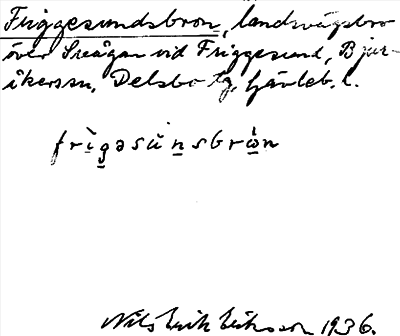 Friggesundsbron, landsvägsbro
över Sveågan vid Friggesund, Bjur-
åkerssn, Delsbo tg, Gävleb. l.
frìgəsùnsbròn
Nils Erik Eriksson 1936.